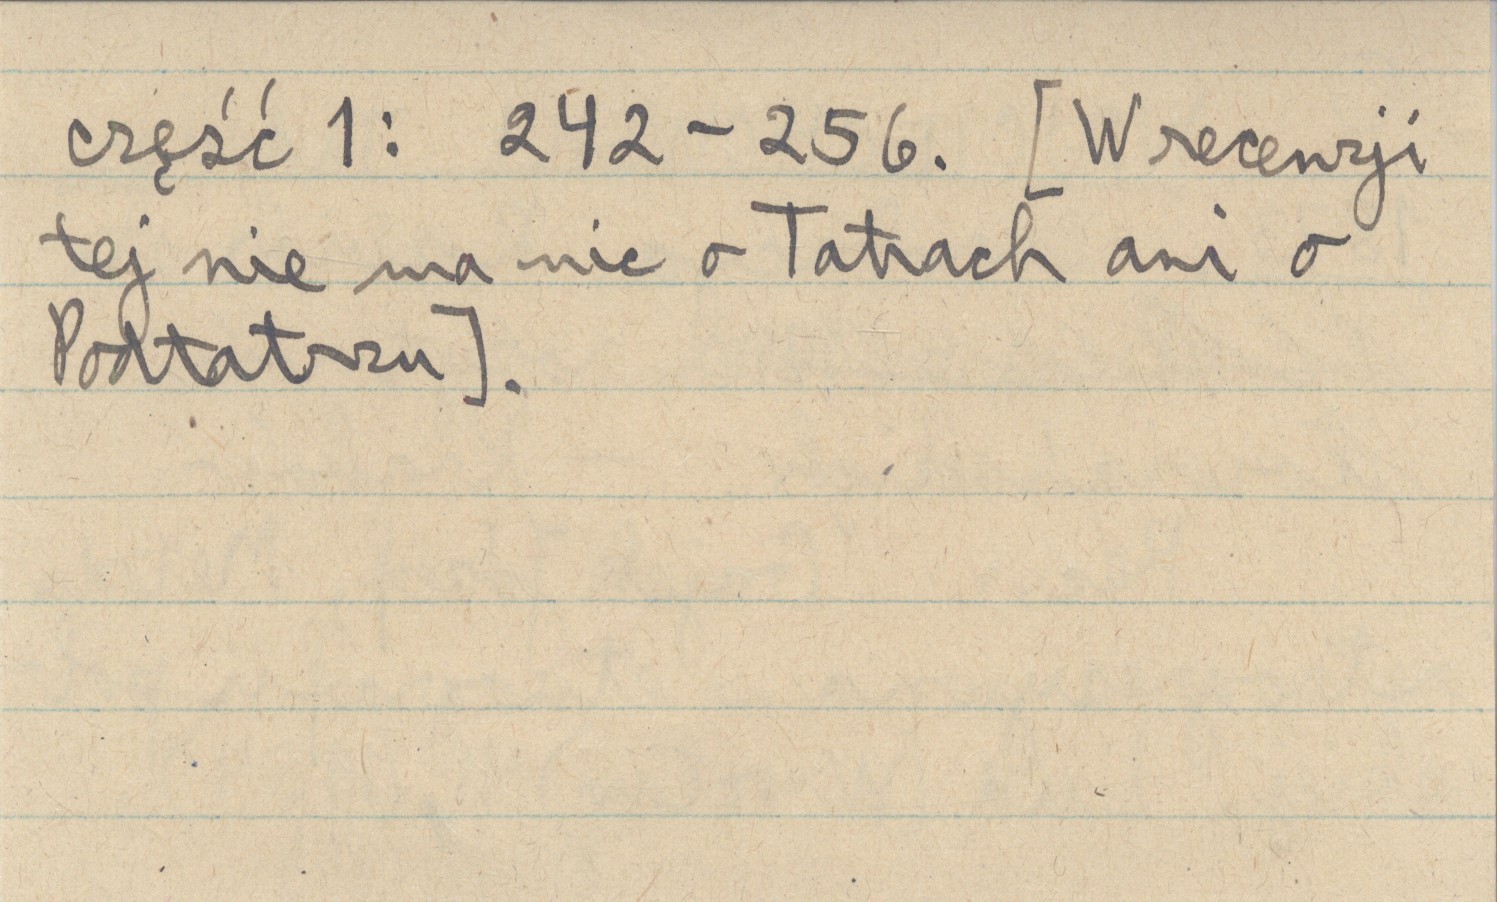 część 1: 242 - 256. [W recenzji
tej nie ma nic o Tatrach ani o
Podtatrzu].